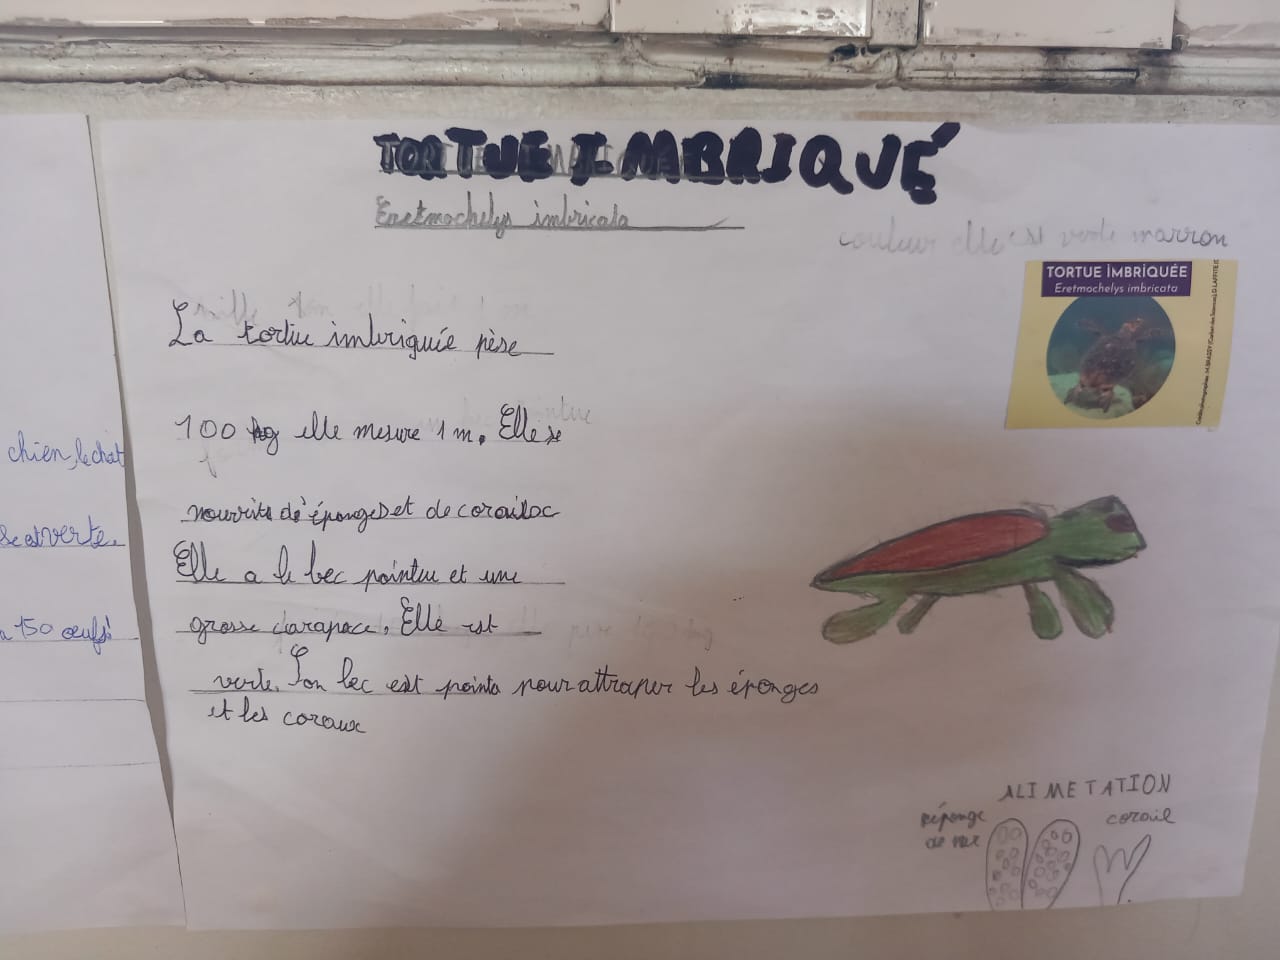 TORTUE IMBRIQUÉ
Eretmochelys imbricata
couleur elle est verte marron
TORTUE IMBRIQUÉE
Eretmochelys imbricata
La tortue imbriquée pèse
100 kg elle mesure 1 m. Elle se
nourrits de éponges et de corail
Elle a le bec pointu et une
grosse carapace. Elle est
verte. Son bec est pointu pour attraper les éponges
et les coraux
chien, le chat
verte.
a 150 œufs!
ALIMETATION
éponge
de mer
corail